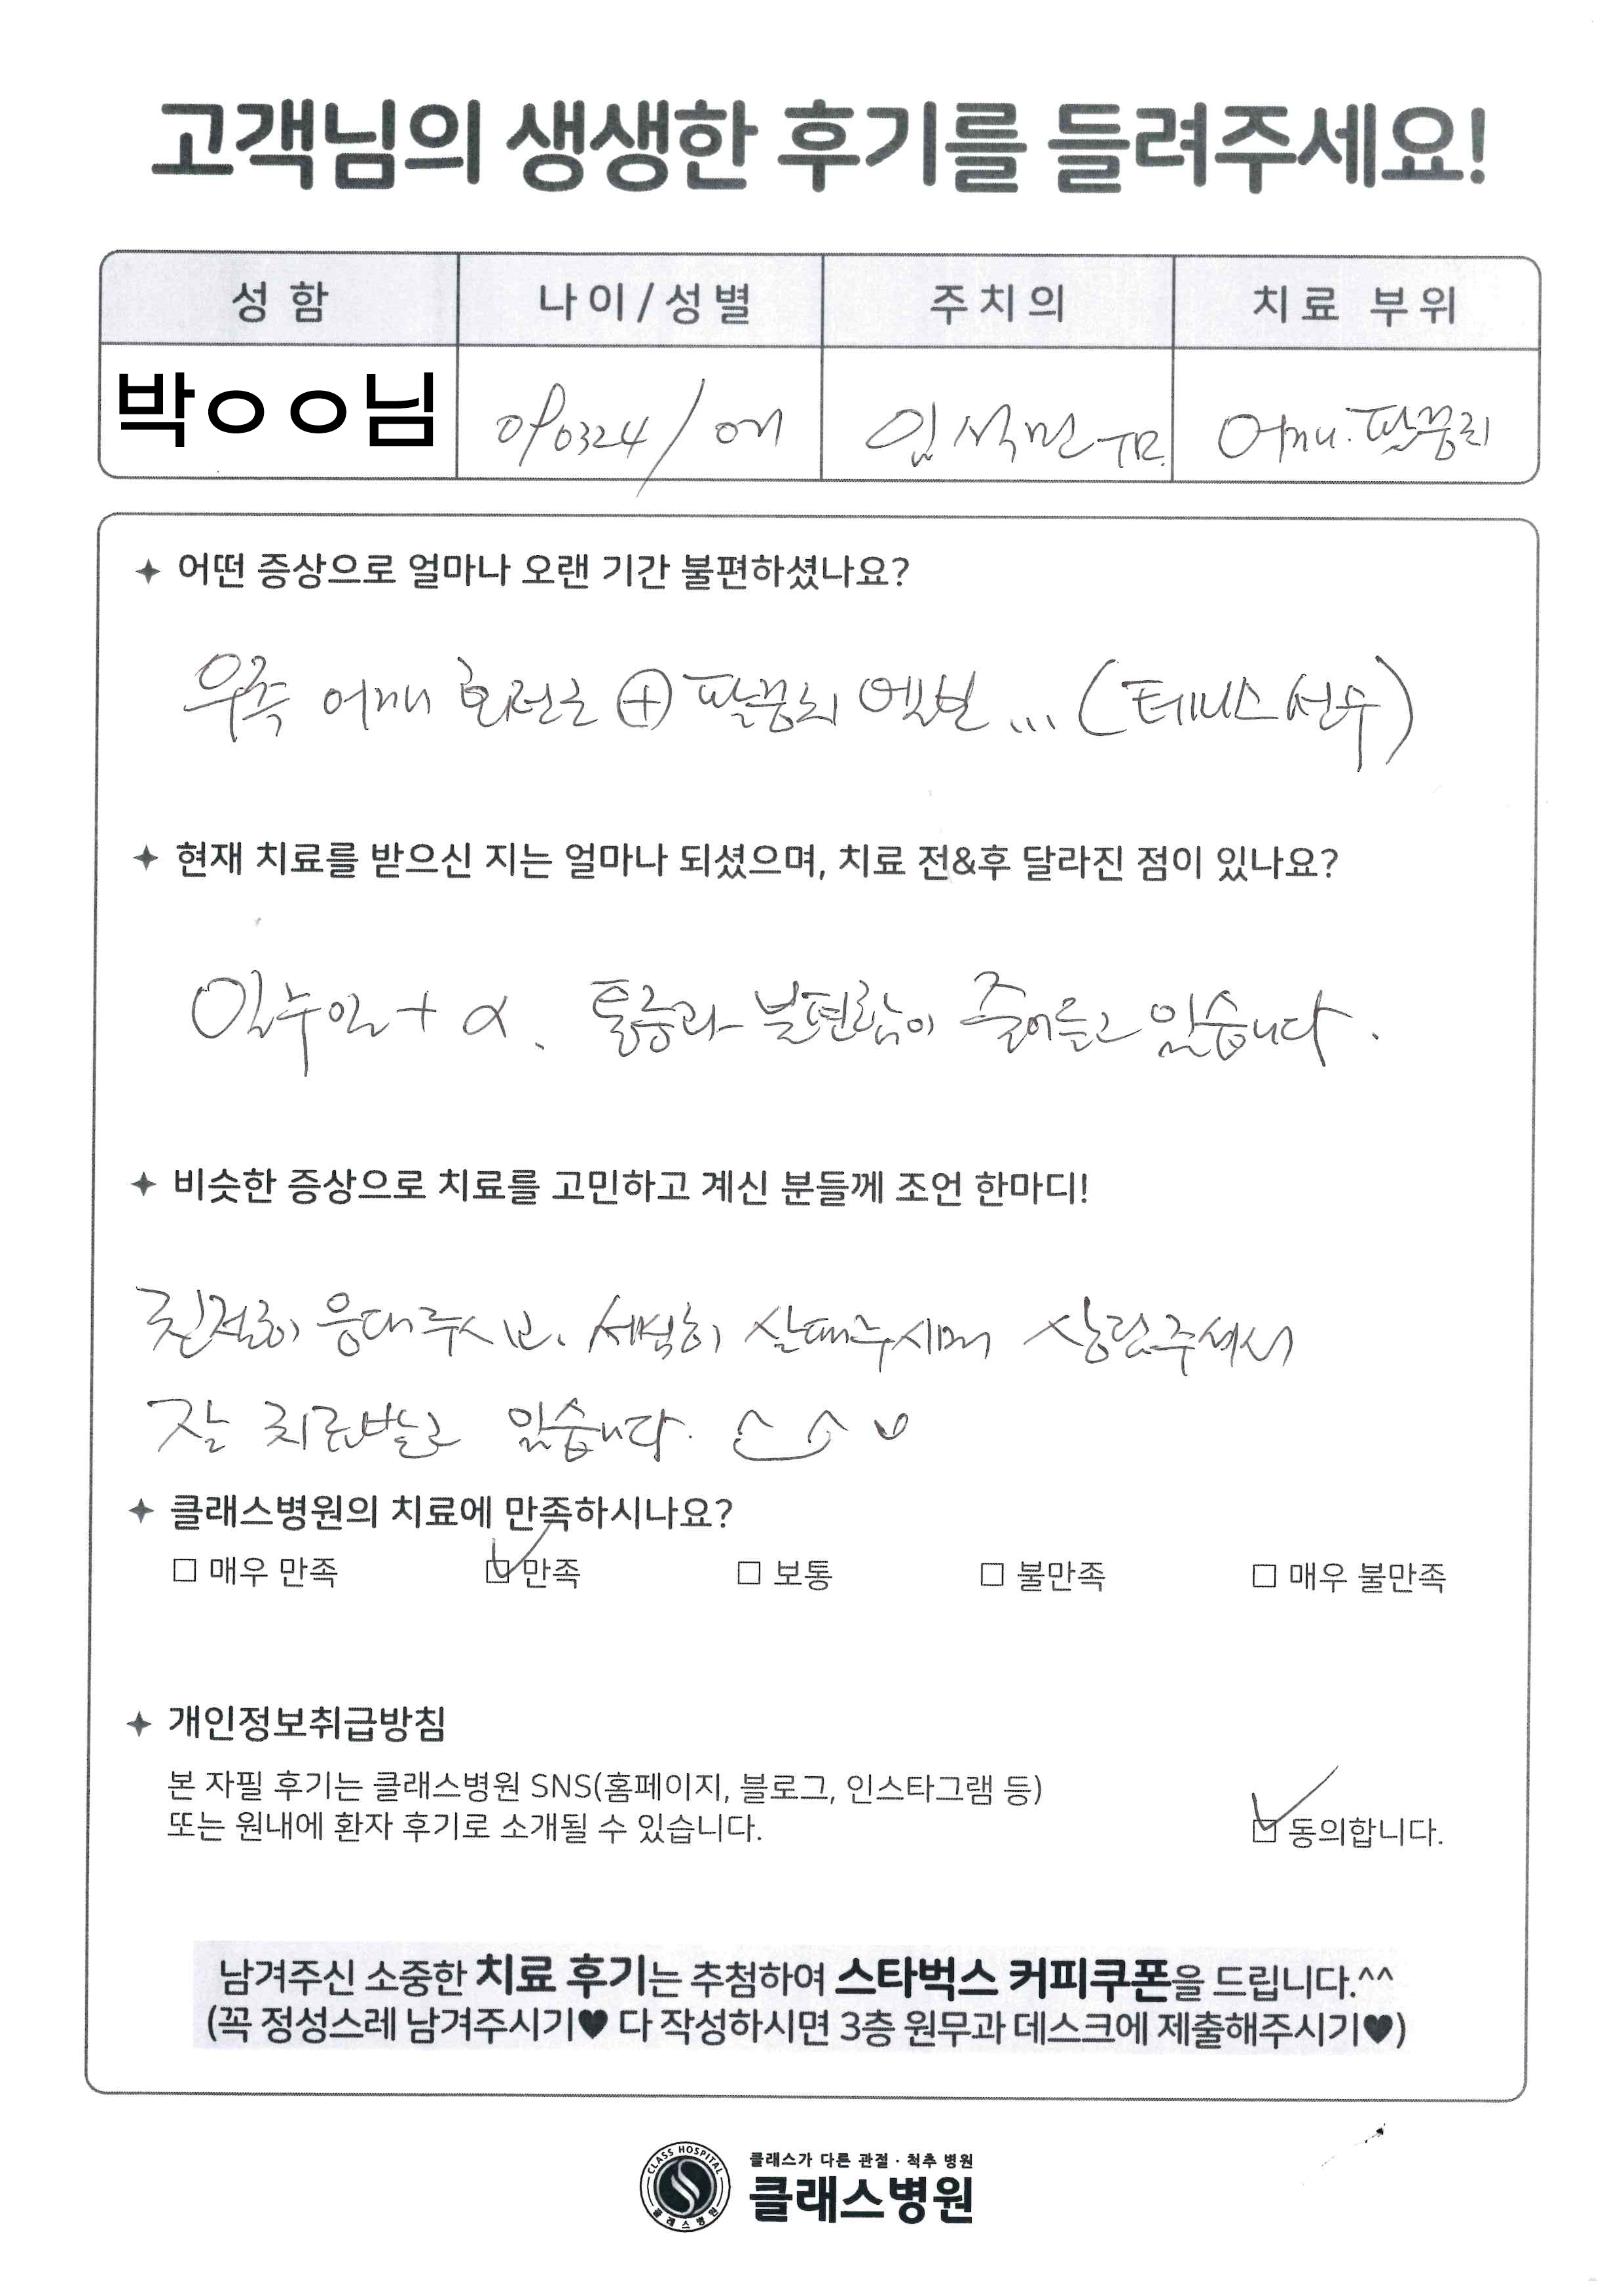 고객님의 생생한 후기를 들려주세요!
성함 나이/성별 주치의 치료 부위
박ㅇㅇ님 /여 임석민 TR. 어깨.팔꿈치
✦ 어떤 증상으로 얼마나 오랜 기간 불편하셨나요?
우측 어깨 회전근 ⊕ 팔꿈치 엘보 ... (테니스 선수)
✦ 현재 치료를 받으신 지는 얼마나 되셨으며, 치료 전&후 달라진 점이 있나요?
일주일 + α. 통증과 불편함이 줄어들고 있습니다.
✦ 비슷한 증상으로 치료를 고민하고 계신 분들께 조언 한마디!
친절히 응대주시고. 세심히 살펴주시며 상담주셔서
잘 치료받고 있습니다.
✦ 클래스병원의 치료에 만족하시나요?
□ 매우 만족 ☑ 만족 □ 보통 □ 불만족 □ 매우 불만족
✦ 개인정보취급방침
본 자필 후기는 클래스병원 SNS(홈페이지, 블로그, 인스타그램 등)
또는 원내에 환자 후기로 소개될 수 있습니다. ☑ 동의합니다.
남겨주신 소중한 치료 후기는 추첨하여 스타벅스 커피쿠폰을 드립니다.^^
(꼭 정성스레 남겨주시기♥ 다 작성하시면 3층 원무과 데스크에 제출해주시기♥)
CLASS HOSPITAL
클래스병원
클래스가 다른 관절·척추 병원
클래스병원